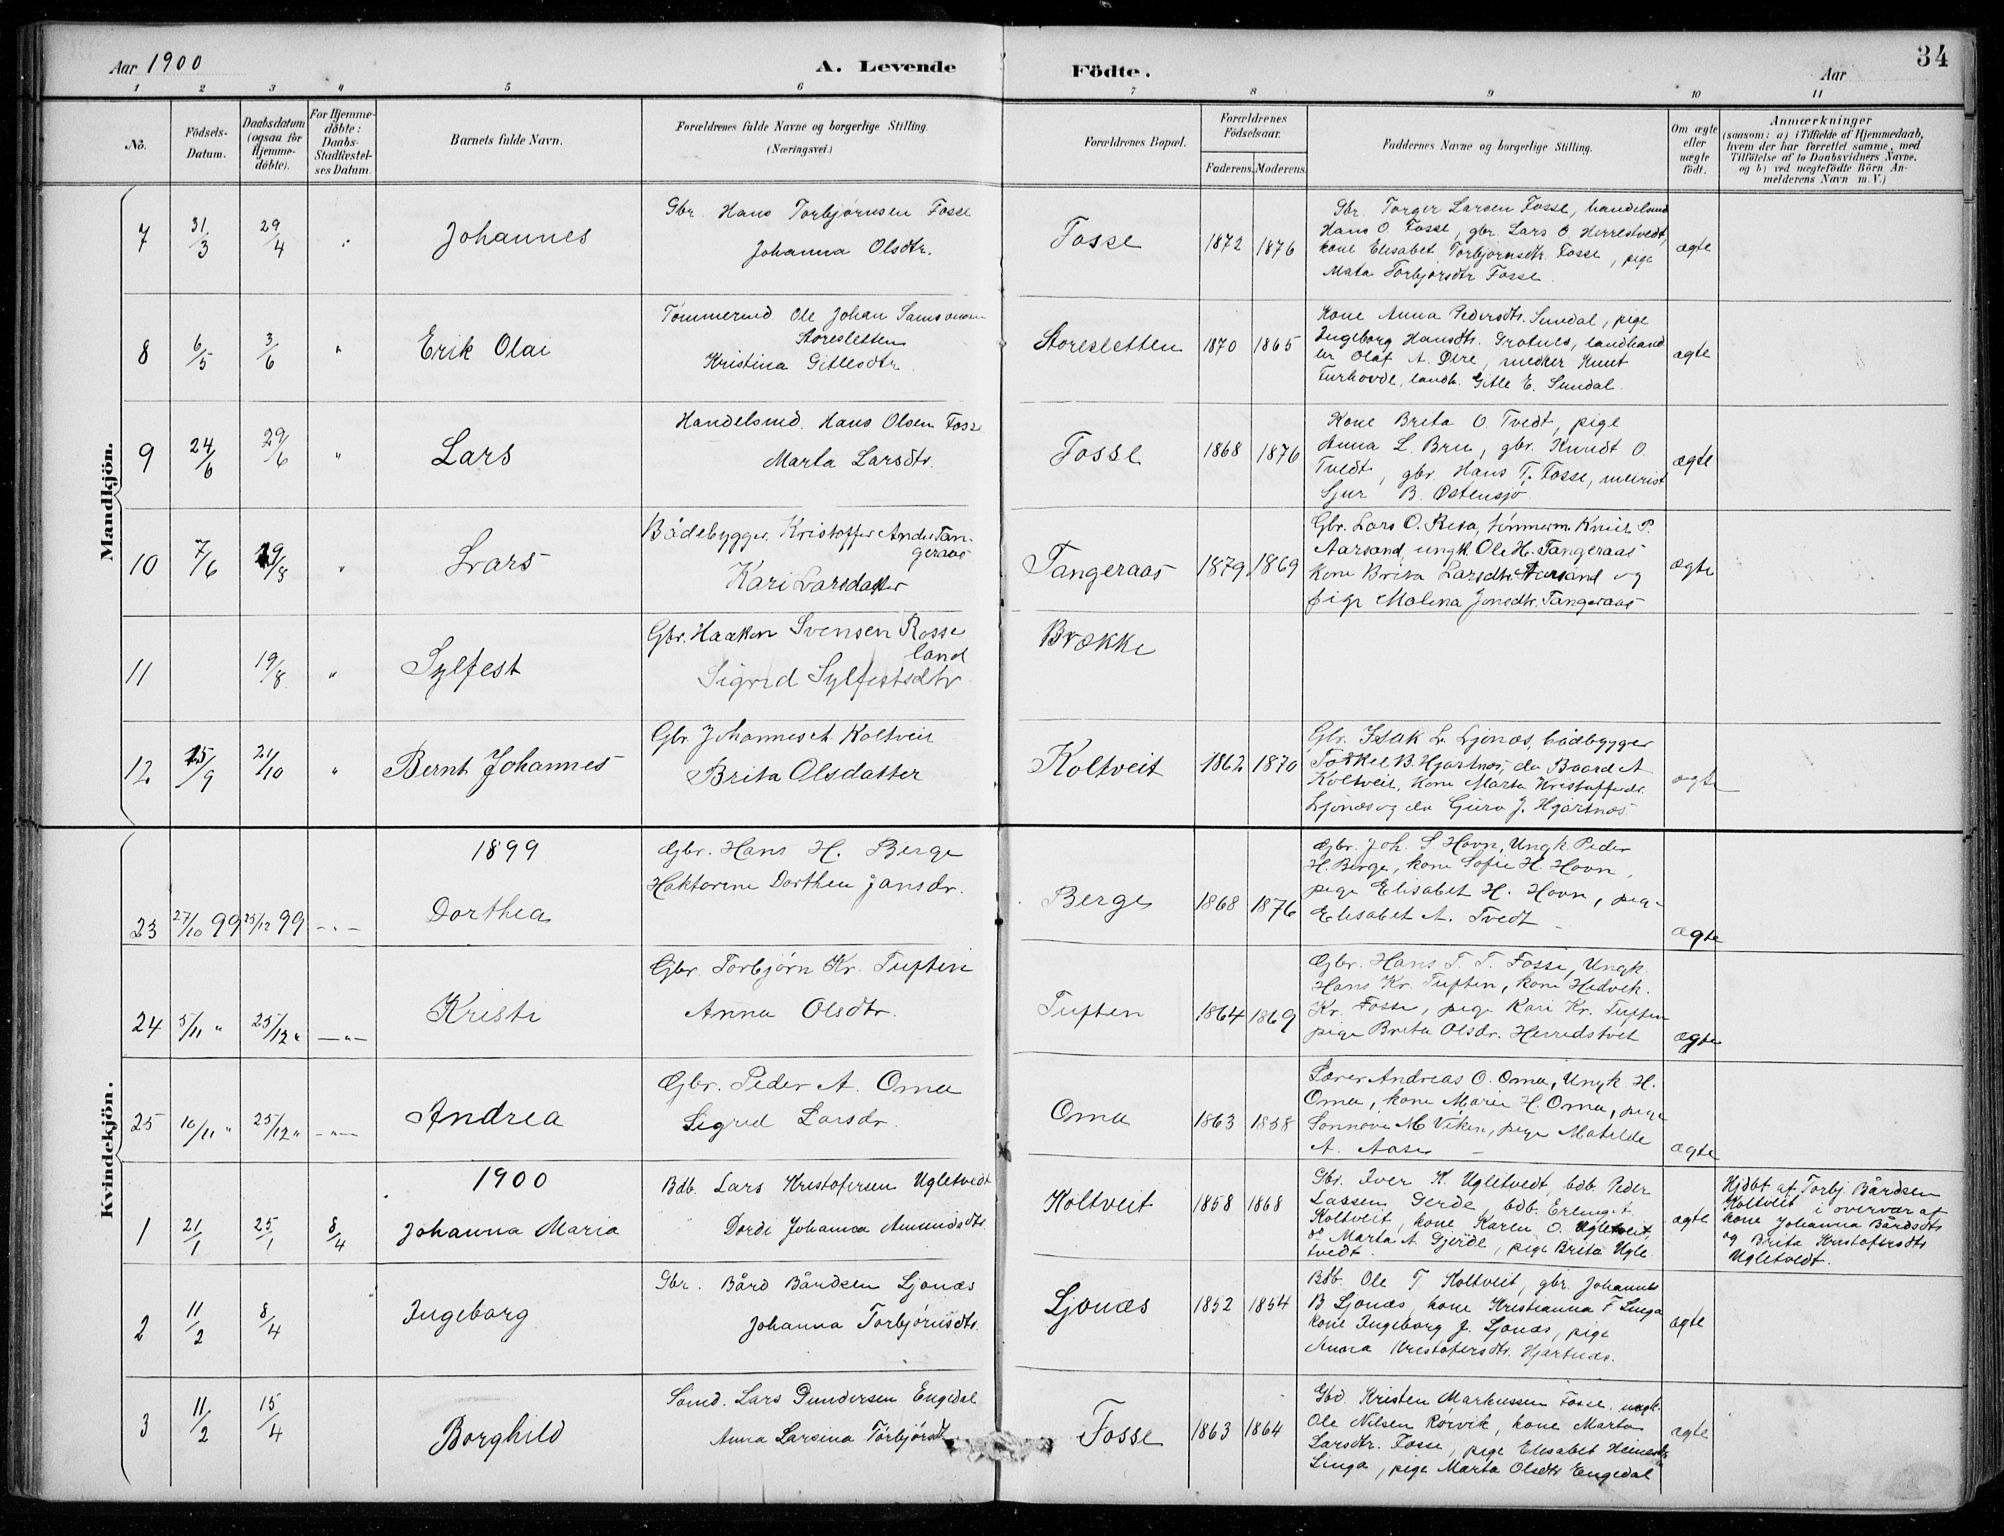 Aar 1900
A. Levende
Födte.
Aar
34
1 2 3 4 5 6 7 8 9 10 11
No.
Födsels-
Datum.
Daabsdatum
(ogsaa for
Hjemme-
döbte).
For Hjemme-
döbte:
Daabs-
Stadfæstel-
ses Datum.
Barnets fulde Navn.
Forældrenes fulde Navne og borgerlige Stilling.
(Næringsvei.)
Forældrenes Bopæl.
Forældrenes
Födselsaar.
Faderens. Moderens.
Faddernes Navne og borgerlige Stilling.
Om ægte
eller
uægte
födt.
Anmærkninger
(saasom: a) i Tilfælde af Hjemmedaab,
hvem der har forrettet samme, med
Tilföielse af to Daabsvidners Navne.
og b) ved uægtefödte Börn An-
melderens Navn m. V.)
Mandkjön.
7 31/3 29/4 " Johannes
Gbr. Hans Torbjørnsen Fosse
Johanna Olsdtr.
Fosse 1872 1876
Gbr. Torger Larsen Fosse, handelsmd
Hans O. Fosse, gbr. Lars O. Herrestvedt,
kone Elisabet Torbjørnsdtr. Fosse, pige
Mata Torbjørsdtr Fosse.
ægte
8 6/5 3/6 " Erik Olai
Tømmermd. Ole Johan Samsonsen
Storesletten
Kristina Gitlesdtr.
Storesletten 1870 1865
Kone Anna Pedersdtr. Sundal, pige
Ingeborg Hansdtr. Grotnes, landhand
ler Olaf A. Øire, snedker Knut
Furhovde, landh. Gitle E. Sundal.
ægte
9 24/6 29/6 " Lars
Handelsmd. Hans Olsen Fosse
Marta Larsdtr.
Fosse 1868 1876
Kone Brita O. Tvedt, pige
Anna L. Bru, gbr. Knudt O.
Tvedt, gbr. Hans T. Fosse, meirist
Sjur B. Østensjø
ægte
10 7/6 19/8 " Lars
Bådebygger. Kristoffer Anders Tan-
geraas
Kari Larsdatter
Tangeraas 1879 1869
Gbr. Lars O. Resa, tømmerm. Knut P.
Aarsand, ungk. Ole H. Tangeraas
Kone Brita Larsdtr Aarsand og
pige Malena Jonsdtr. Tangeraas
ægte
11 19/8 " Sylfest
Gbr. Haakon Svensen Rosse
land
Sigrid Sylfestsdtr
Brække
12 15/9 21/10 " Bernt Johannes
Gbr. Johannes A. Koltveit
Brita Olsdatter
Koltveit 1862 1870
Gbr. Isak L. Ljonæs, bådbygger
Torkel B. Hjartnæs, do Baard A
Koltveit, Kone Marta Kristoffersdr.
Ljonæs og do Guro J. Hjartnæs.
ægte
Kvindekjön.
1899
23 27/10 99 25/12 99 —"— Dorthea
Gbr. Hans H. Berge
Haktorine Dorthea Jansdr.
Berge 1868 1876
Gbr. Joh. S. Hovn, Ungk. Peder
H. Berge, kone Sofie H. Hovn,
pige Elisabet H. Hovn, pige
Elisabet A. Tvedt
ægte
24 5/11 " 25/12 " —"— Kristi
Gbr. Torbjørn Kr. Tuften
Anna Olsdtr.
Tuften 1864 1869
Gbr. Hans T. T. Fosse, Ungk.
Hans Kr. Tuften, kone Hedvik
Kr. Fosse, pige Kari Kr. Tuften
pige Brita Olsdr. Herredstvet
ægte
25 10/11 " 25/12 " —"— Andrea
Gbr. Peder A. Oma
Sigrid Larsdr.
Oma 1863 1858
Lærer Andreas O. Oma, Ungk. H.
Oma, kone Marie H. Oma, pige
Sønnøve M. Viken, pige Matilde
A. Aase
ægte
1900
1 21/1 25/1 8/4 Johanna Maria
Bdb. Lars Kristofersen Ugletvedt
Dorde Johanna Amundsdtr.
Koltveit 1858 1868
Gbr. Iver K. Ugletvedt, bdb. Peder
Lassen Gerde, bdb. Erling T.
Koltveit, kone Karen O. Ugletveit,
do Marta A. Gjerde, pige Brita Ugle
tvedt.
ægte
Hjdbt. af Torbj. Bårdsen
Koltveit i overvær af
kone Johanna Bårdsdtr
og Brita Kristofersdtr
Ugletvedt.
2 11/2 8/4 Ingeborg
Gbr. Bård Bårdsen Ljonæs
Johanna Torbjørnsdtr.
Ljonæs 1852 1854
Bdb. Ole T Koltveit, gbr. Johannes
B Ljonæs, kone Kristianna F Linga
kone Ingeborg J. Ljonæs, pige
Anna Kristofersdtr. Hjartnæs.
ægte
3 11/2 15/4 Borghild
Smd. Lars Gundersen Engedal
Anna Larsina Torbjørsdtr
Fosse 1863 1864
Gbd Kristen Markussen Fosse, ungk.
Ole Nilsen Rørvik, kone Marta
Larsdtr. Fosse, pige Elisabet
Linga, pige Marta Olsdtr Engedal
ægte